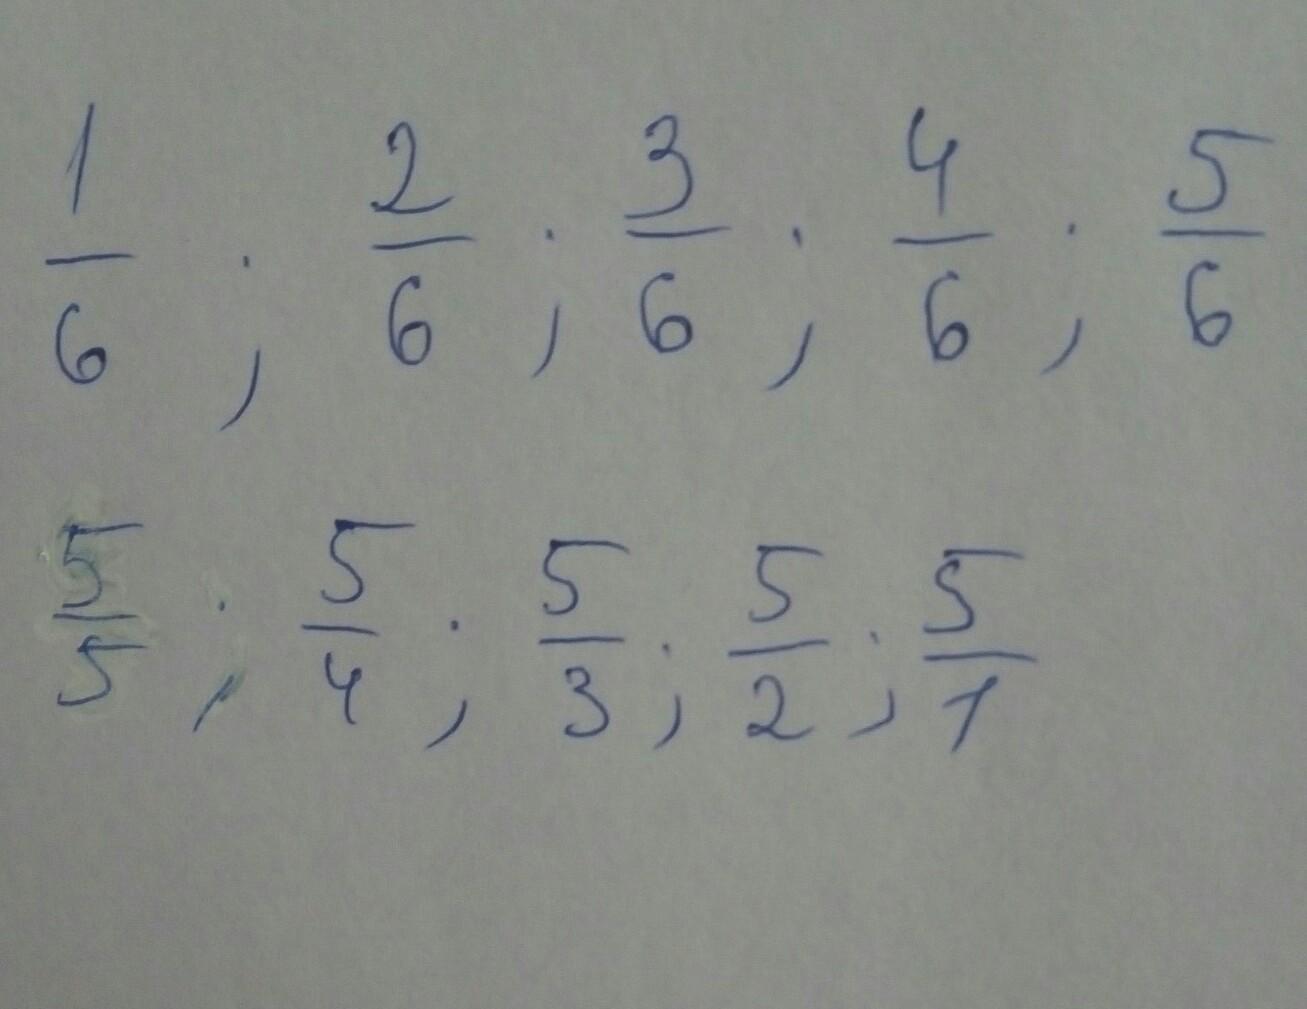 1/6 ; 2/6 ; 3/6 ; 4/6 ; 5/6
5/5 ; 5/4 ; 5/3 ; 5/2 ; 5/1